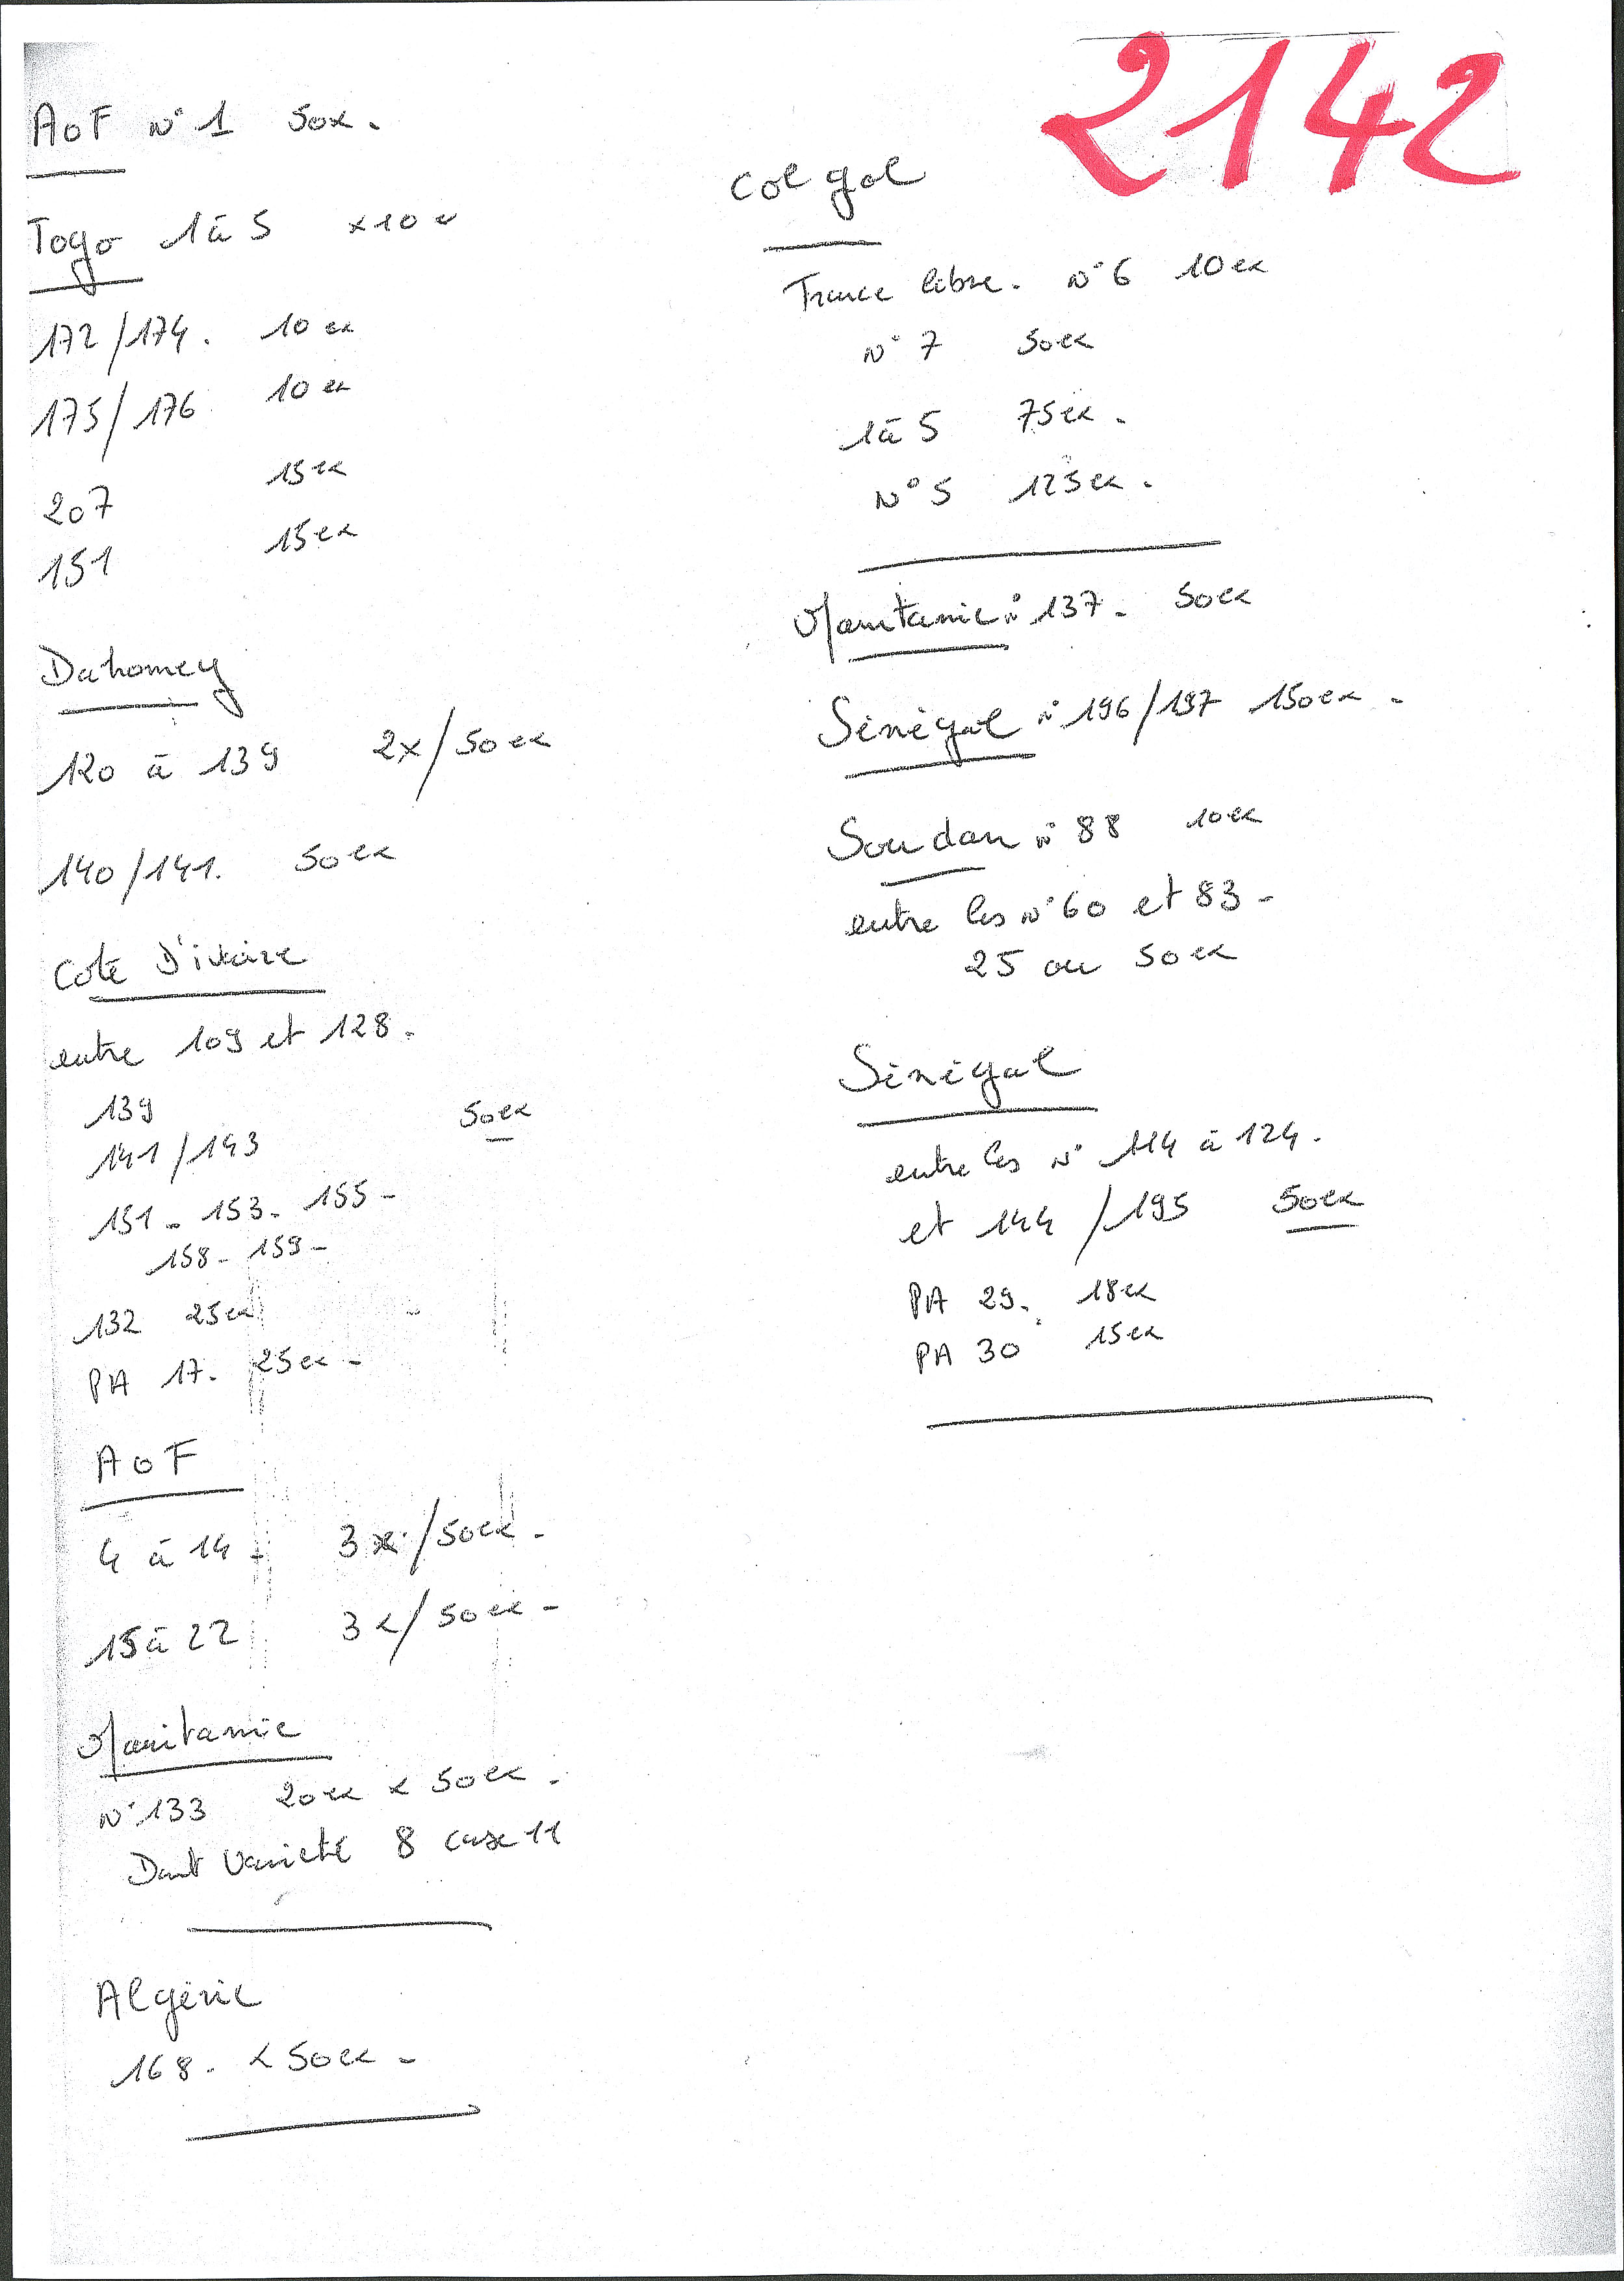 2142
AOF N° 1 50x.
Togo 1 à 5 x10e
172/174. 10ex
175/176 10ex
207 15ex
151 15ex
Dahomey
120 à 139 2x/50ex
140/141. 50ex
Cote D'ivoire
entre 109 et 128.
139 50ex
141/143
151 - 153 - 155 -
158 - 159 -
132 25ex
PA 17. 25ex -
AOF
4 à 14 - 3x/50ex -
15 à 22 3x/50ex -
Mauritanie
N° 133 20ex x 50ex -
Dont variété 8 case 11
Algérie
168. x 50ex -
Col gal
France libre. N° 6 10ex
N° 7 50ex
1 à 5 75ex -
N° 5 125ex -
Mauritanie n° 137 - 50ex
Sénégal n° 196/197 150ex -
Soudan n° 88 10ex
entre les N° 60 et 83 -
25 ou 50ex
Sénégal
entre les N° 114 à 124.
et 144/195 50ex
PA 29. 18ex
PA 30 15ex